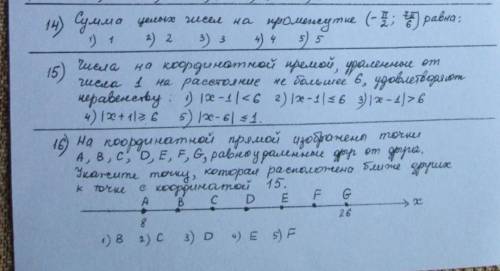 14) Сумма целых чисел на промежутке (-π/2; 7π/6) равна:
1) 1 2) 2 3) 3 4) 4 5) 5
15) Числа на координатной прямой, удаленные от
числа 1 на расстояние не большее 6, удовлетворяют
неравенству: 1) |x-1|<6 2) |x-1|≤6 3) |x-1|>6
4) |x+1|≥6 5) |x-6|≤1.
16) На координатной прямой изображены точки
A, B, C, D, E, F, G, равноудаленные друг от друга.
Укажите точку, которая расположена ближе других
к точке с координатой 15.
A B C D E F G
x
8 26
1) B 2) C 3) D 4) E 5) F